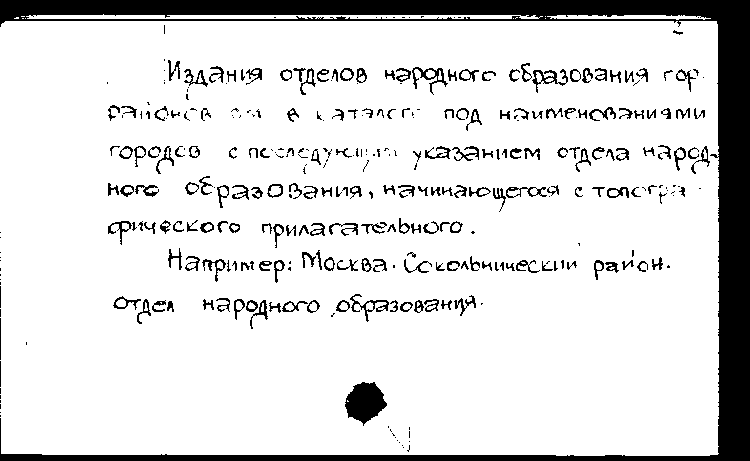 2
Издания отделов народного образования гор.
районов см в каталоге под наименованиями
городов с последующим указанием отдела народ-
ного образования, начинающегося с топогра-
фического прилагательного.
Например: Москва. Сокольнический район.
отдел народного образования.